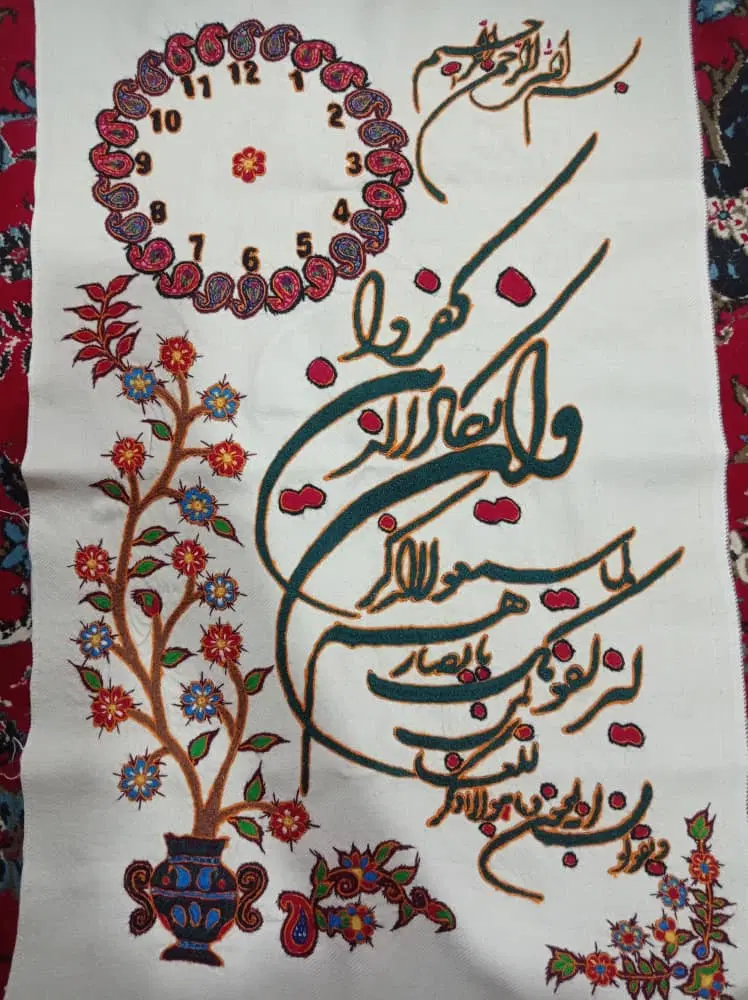 12
1
2
3
4
5
6
7
8
9
10
11
بسم الله الرحمن الرحیم
وان یکاد الذین کفروا
لیزلقونک بابصارهم
لما سمعوا الذکر
ویقولون انه لمجنون
وما هو الا ذکر
للعالمین